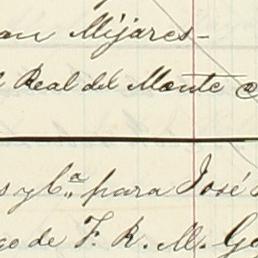 an Mijares-
l Real del Monte
s y Cª para José
go de F. R. M. Go